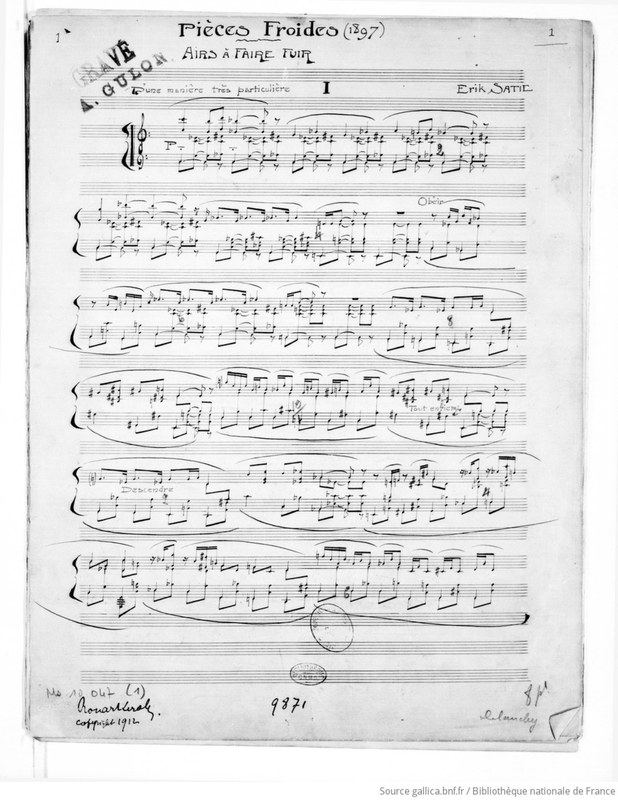 Pièces Froides (1897)
1
1
Airs à faire fuir
GRAVÉ
A. GULON
D'une manière très particulière
I
Erik Satie
Obéir
Tout entier
Descendre
Ms 10 047 (1)
copyright 1912
9871
Source gallica.bnf.fr / Bibliothèque nationale de France